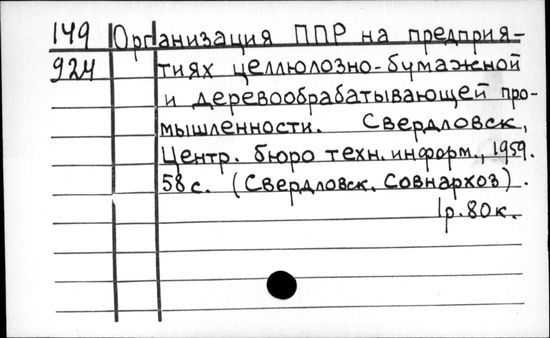 149 Организация ППР на предприя-
924 тиях целлюлозно-бумажной
и деревообрабатывающей про-
мышленности. Свердловск,
Центр. бюро техн. информ., 1959.
58 с. (Свердловск. Совнархоз).
1р.80к.